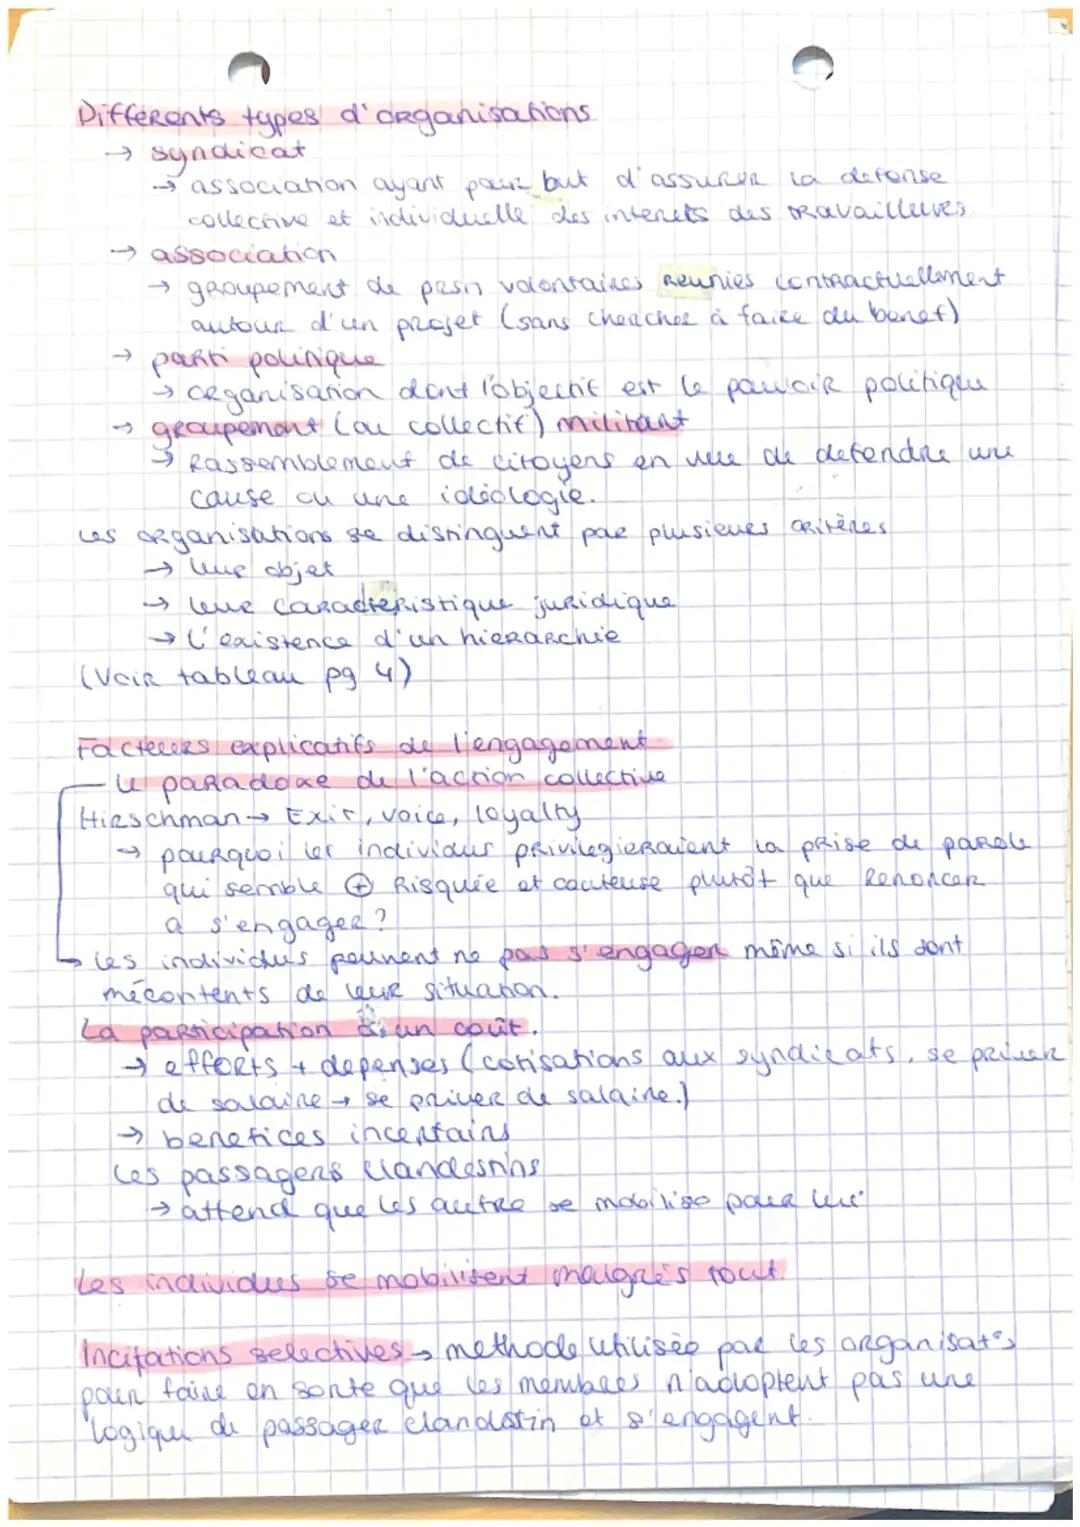 Différents types d'organisations
→ syndicat
→ association ayant pour but d'assurer la défense
collective et individuelle des interets des travailleures
→ association
→ groupement de pers volontaires réunies contractuellement
autour d'un projet (sans chercher à faire du benef)
→ parti politique
→ organisation dont l'objectif est le pouvoir politique
→ groupement (ou collectif) militant
→ Rassemblement de citoyens en vue de defendre une
cause ou une idéologie.
Les organisations se distinguent par plusieurs critères
→ leur objet
→ leur caractéristique juridique
→ L'existence d'un hierarchie
(Voir tableau pg 4)
Facteurs explicatifs de l'engagement
Le paradoxe de l'action collective
Hirschman → Exit, voice, loyalty
→ pourquoi les individus privilegieraient la prise de parole
qui semble ⊕ Risquée et couteuse plutôt que Renoncer
a s'engager ?
↳ Les individus peuvent ne pas s'engager même si ils sont
mécontents de leur situation.
La participation a un coût.
→ efforts + depenses (cotisations aux syndicats, se priver
de salaire → se priver de salaire.)
→ benefices incertains
Les passagers clandestins
→ attend que les autre se mobilise pour lui
Les individus se mobilisent malgrès tout.
Incitations selectives → methode utilisée par les organisat°s
pour faire en sorte que les membres n'adoptent pas une
logique de passager clandestin et s'engagent.